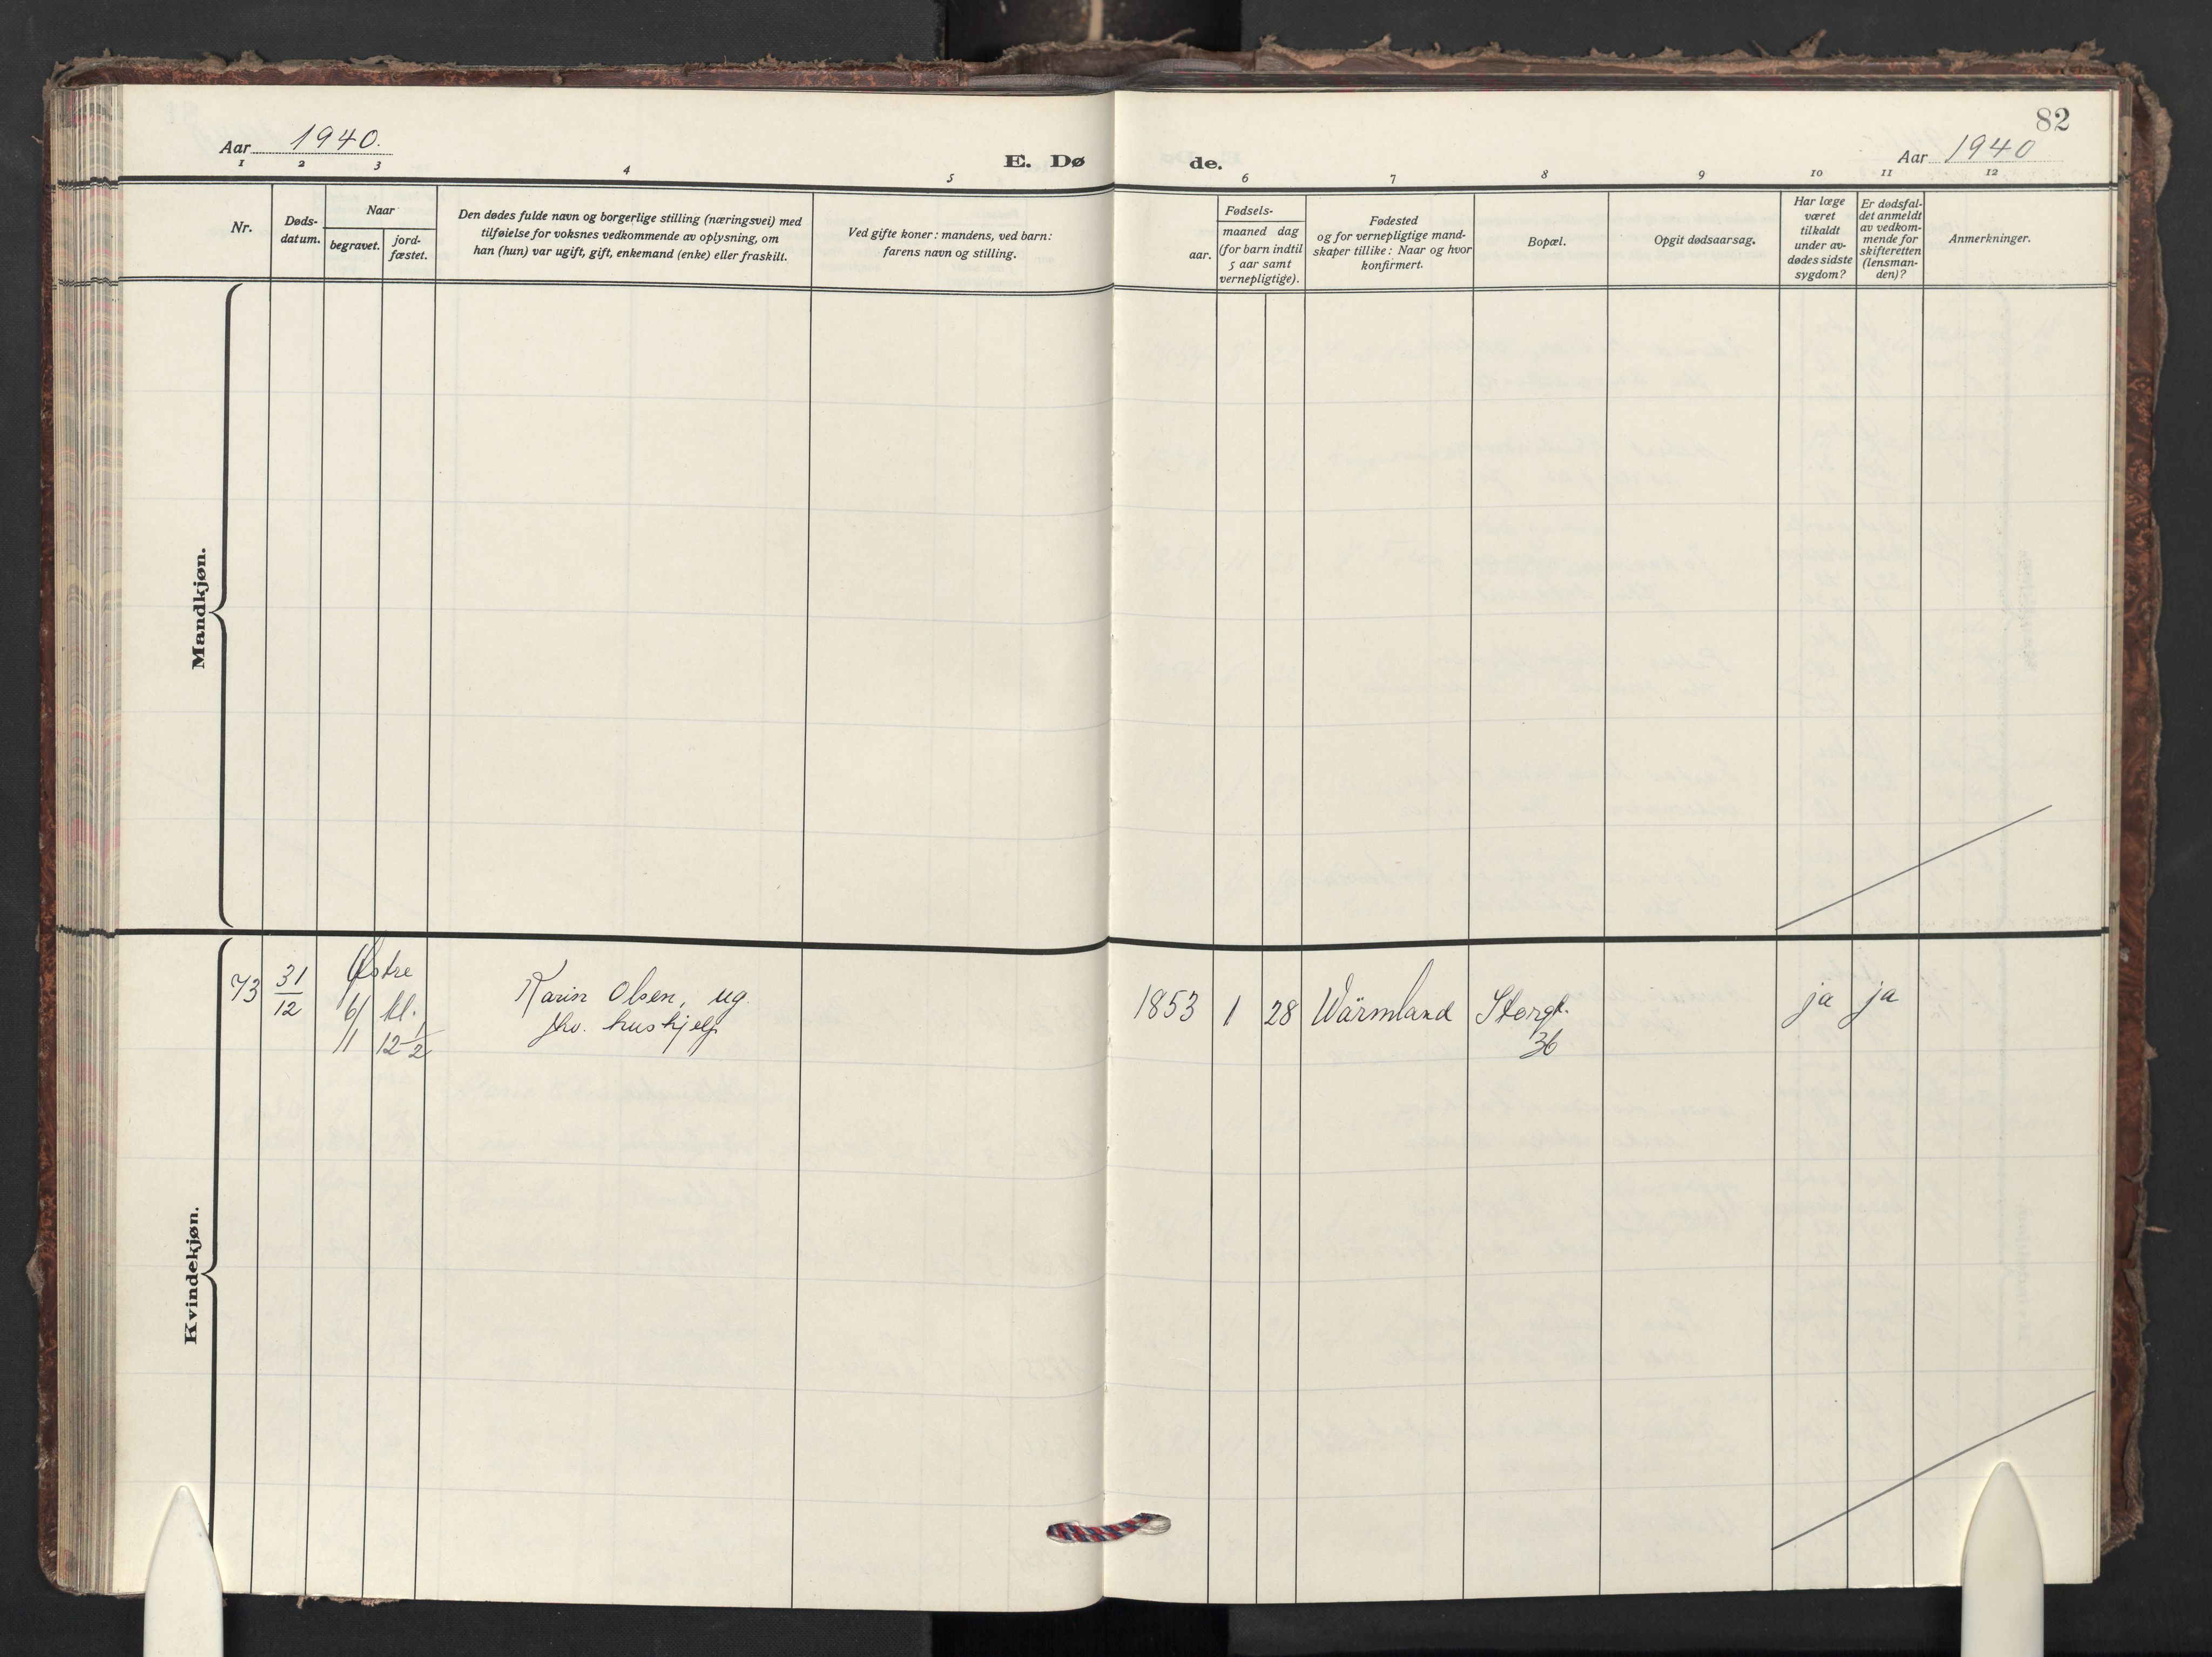 Aar 1940.
E. Døde.
82
Aar 1940
1 2 3 4 5 6 7 8 9 10 11 12
Nr.
Døds-
datum.
Naar
begravet.
jord-
fæstet.
Den dødes fulde navn og borgerlige stilling (næringsvei) med
tilføielse for voksnes vedkommende av oplysning, om
han (hun) var ugift, gift, enkemand (enke) eller fraskilt.
Ved gifte koner: mandens, ved barn:
farens navn og stilling.
aar.
Fødsels-
maaned dag
(for barn indtil
5 aar samt
vernepligtige).
Fødested
og for vernepligtige mand-
skaper tillike: Naar og hvor
konfirmert.
Bopæl.
Opgit dødsaarsag.
Har læge
været
tilkaldt
under av-
dødes sidste
sygdom?
Er dødsfal-
det anmeldt
av vedkom-
mende for
skifteretten
(lensman-
den)?
Anmerkninger.
Mandkjøn.
Kvindekjøn.
73
31/12
Østre
6/1
kl.
12 1/2
Karin Olsen, ug.
fhv. hushjelp
1853 1 28 Wärmland
Storgt.
36
ja ja